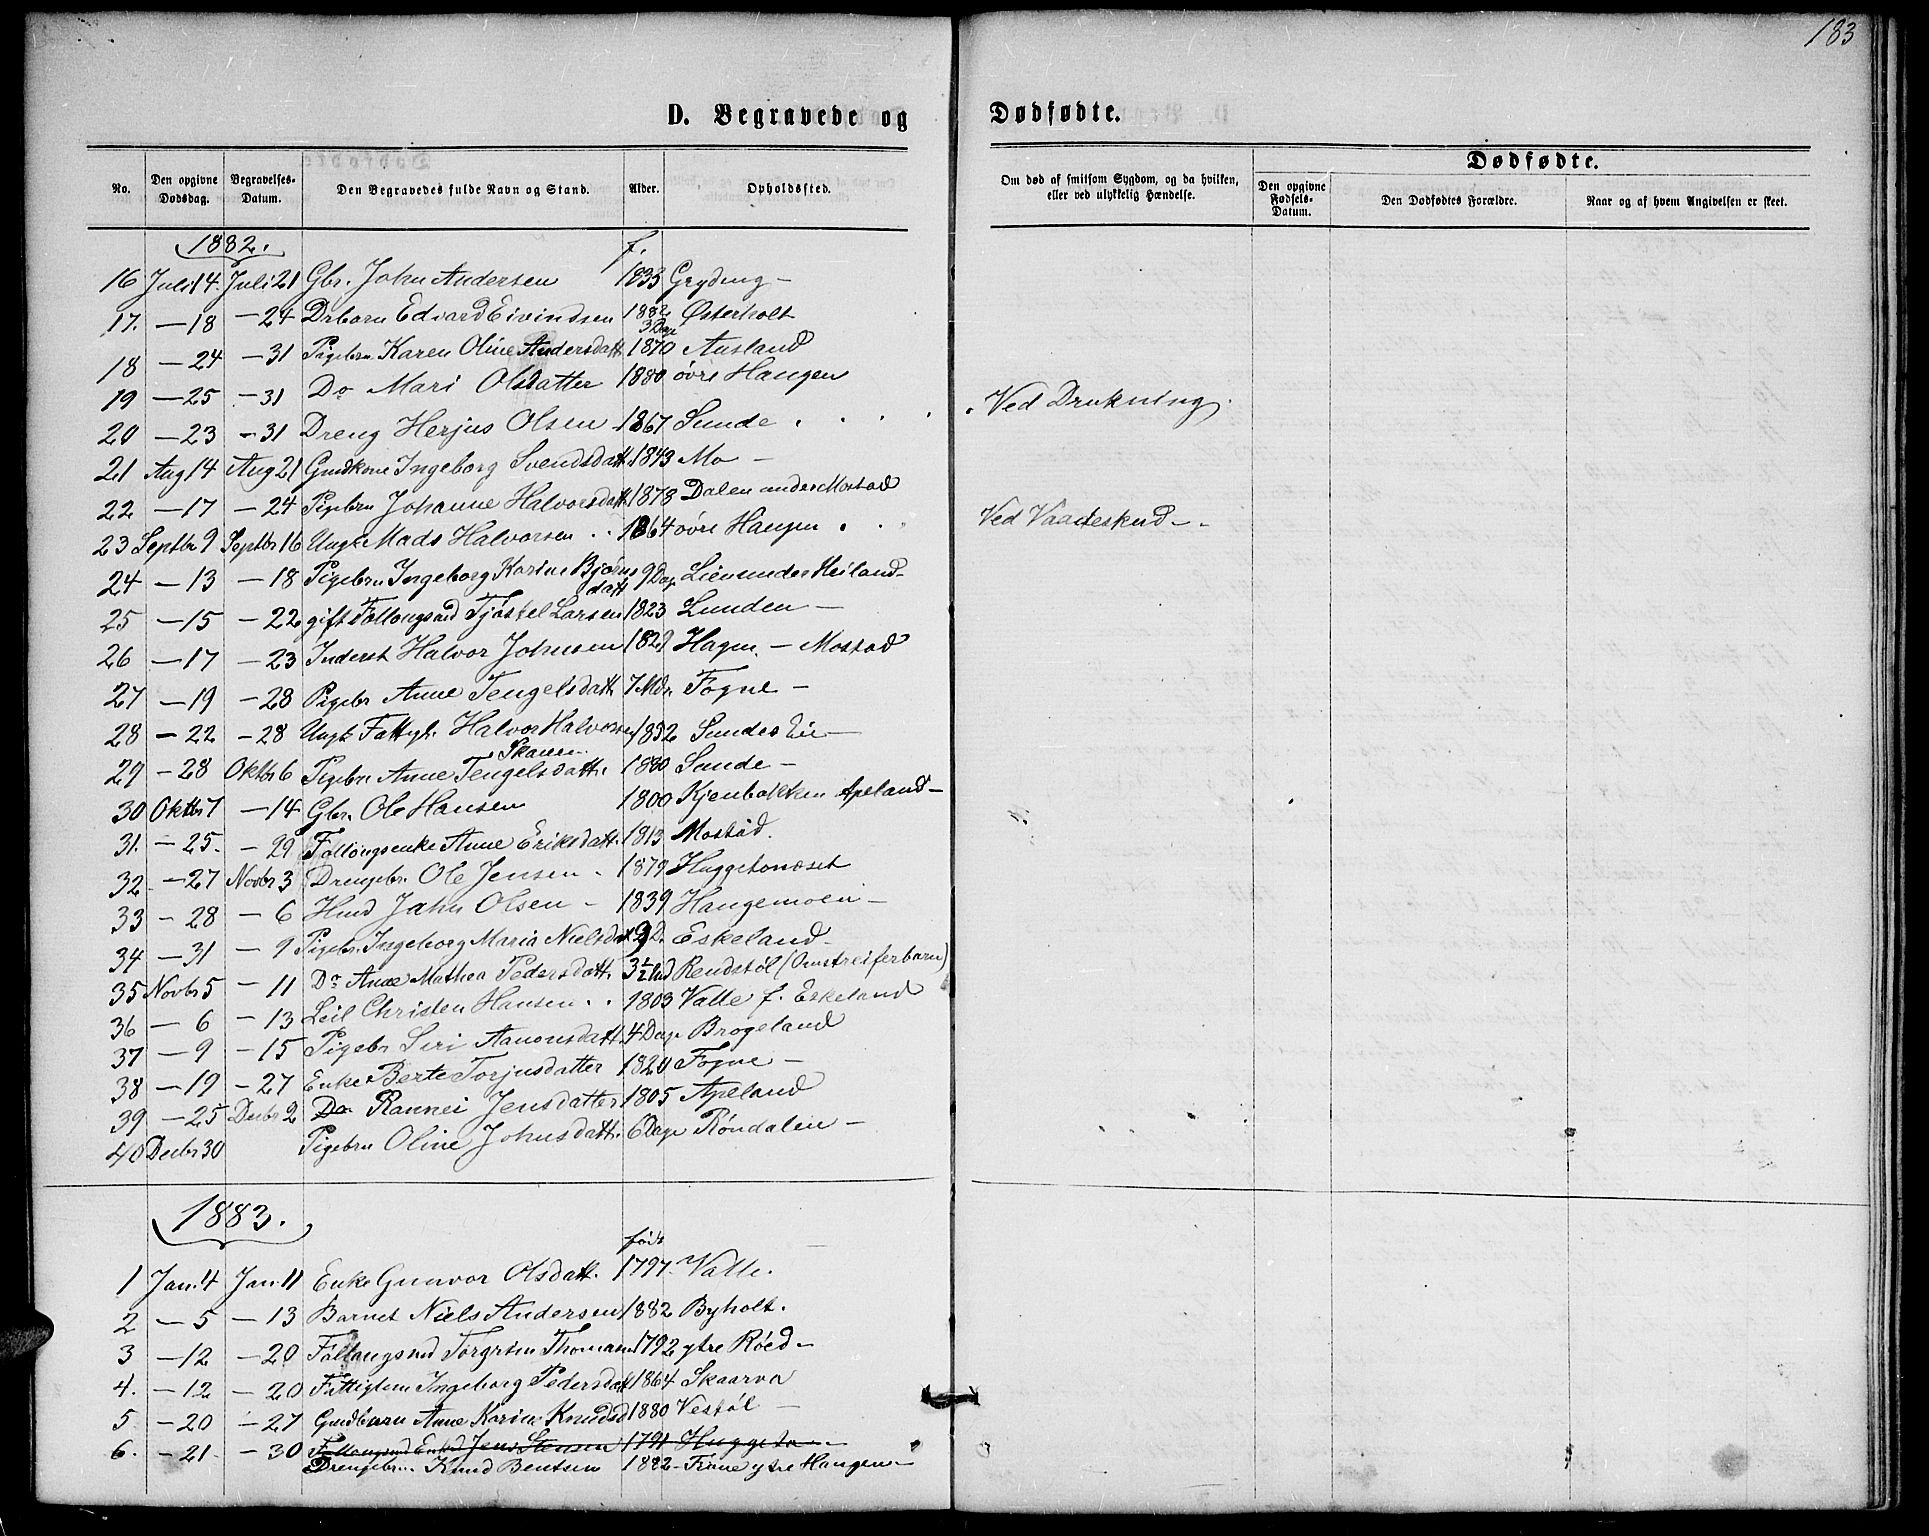 183
D. Begravede og Dødfødte.
No. Den opgivne Dødsdag. Begravelses-Datum. Den Begravedes fulde Navn og Stand. Alder. Opholdssted. Om død af smitsom Sygdom, og da hvilken, eller ved ulykkelig Hændelse. Dødfødte. Den opgivne Fødsels-Datum. Den Dødfødtes Forældre. Naar og af hvem Angivelsen er skeet.
1882. f.
16 Juli 14. Juli 21 Gbr. John Andersen 1833 Gryting –
17. – 18 – 24 Drbarn Edvard Eivindsen 1882 3 Dage Østerholt
18 – 24 – 31 Pigebrn Karen Oline Andersdatt. 1870 Ausland
19 – 25 – 31 Do Mari Olsdatter 1880 övre Haugen
20 – 23 – 31 Dreng Herjus Olsen 1867 Sunde . . . . Ved Drukning.
21 Aug 14 Aug 21 Gmdkone Ingeborg Svendsdatt. 1843 Mo –
22 – 17 – 24 Pigebrn Johanne Halvorsdatt. 1878 Dalen under Mostad
23 Septbr 9 Septbr 16 Ungk. Mads Halvorsen . . 1864 övre Haugen . . . Ved Vaadeskud – .
24 – 13 – 18 Pigebrn Ingeborg Karine Bjørnsdatt 9 Dag Lien under Heiland –
25 – 15 – 22 gift Føllougsmd Tjöstel Larsen 1823 Lunden –
26 – 17 – 23 Inderst Halvor Johnsen 1829 Hagen. – Mostad
27 – 19 – 28 Pigebr Anne Tengelsdatt. 7 Mdr. Fogne –
28 – 22 – 28 Ungk Fattigl. Halvor Halvorsen Skaaren 1832 Sundes Eie –
29 – 28 Oktbr 6 Pigebrn Anne Tengelsdatt. 1880 Sunde –
30 Oktbr 7 – 14 Gbr. Ole Hansen 1800 Kjenbakken Apeland –
31. – 25. – 29 Føllougsenke Anne Eriksdatt. 1813 Mostad.
32 – 27 Novbr 3 Drengebr. Ole Jensen . 1879 Huggetonæset
33 – 28 – 6 Hmd John Olsen – 1839 Haugemoen –
34 – 31 – 9 Pigebr. Ingeborg Maria Nielsdat 9 D. Eskeland –
35 Novbr 5 – 11 Do Anne Mathea Pedersdatt. 3½ Md Rendstöl (Omstreiferbarn)
36 – 6 – 13 Leil Christen Hansen . . 1803 Valle f. Eskeland
37 – 9 – 15 Pigebr Siri Aanonsdatt. 4 Dage Brogeland
38 – 19 – 27 Enke Berte Torjusdatter 1820 Fogne –
39 – 25 Decbr 2 Do. Rannei Jensdatter 1805 Apeland
40 Decbr 30 Pigebrn Oline Johnsdatt. 6 Dage Röndalen –
1883. födt
1 Jan. 4 Jan. 11 Enke Gunvor Olsdatt. 1797. Valle.
2 – 5 – 13 Barnet Niels Andersen 1882 Byholt.
3 – 12 – 20 Føllougsmd Torgrim Thomasen 1792 ytre Röed –
4. – 12 – 20 Fattiglem Ingeborg Pedersdatt 1864 Skaarva
5 – 20 – 27 Gmdbarn Anne Karine Knudsd 1880 Vestöl –
6. – 21. – 30 Føllougsmd Enkm Jens Stensen 1791 Huggeto –
Drengebr. Knud Bentsen 1882 – Frone ytre Haugen –